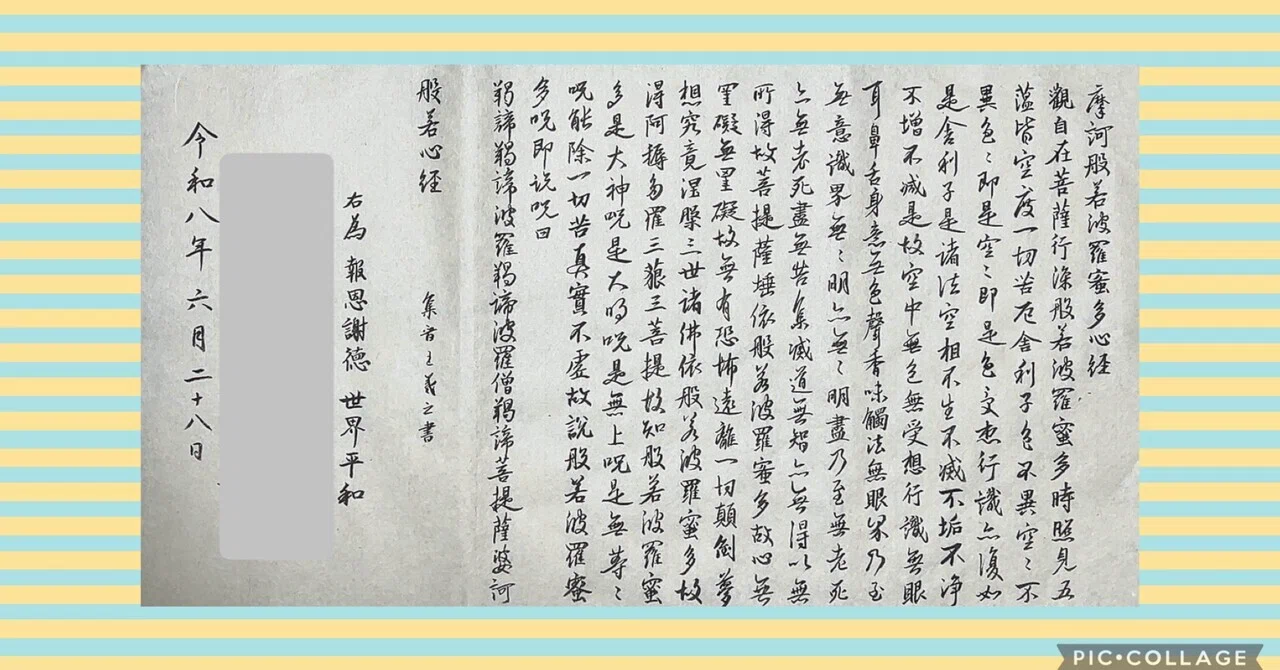 摩訶般若波羅蜜多心経
觀自在菩薩行深般若波羅蜜多時照見五
蘊皆空度一切苦厄舍利子色不異空〻不
異色〻即是空〻即是色受想行識亦復如
是舍利子是諸法空相不生不滅不垢不浄
不增不減是故空中無色無受想行識無眼
耳鼻舌身意無色聲香味觸法無眼界乃至
無意識界無〻明亦無〻明盡乃至無老死
亦無老死盡無苦集滅道無智亦無得以無
所得故菩提薩埵依般若波羅蜜多故心無
罣礙無罣礙故無有恐怖遠離一切顛倒夢
想究竟涅槃三世諸佛依般若波羅蜜多故
得阿耨多羅三藐三菩提故知般若波羅蜜
多是大神呪是大明呪是無上呪是無等〻
呪能除一切苦真實不虚故説般若波羅蜜
多呪即説呪曰
羯諦羯諦波羅羯諦波羅僧羯諦菩提薩婆訶
般若心経 集字王羲之書
右為 報恩謝徳 世界平和
令和八年六月二十八日
PIC•COLLAGE